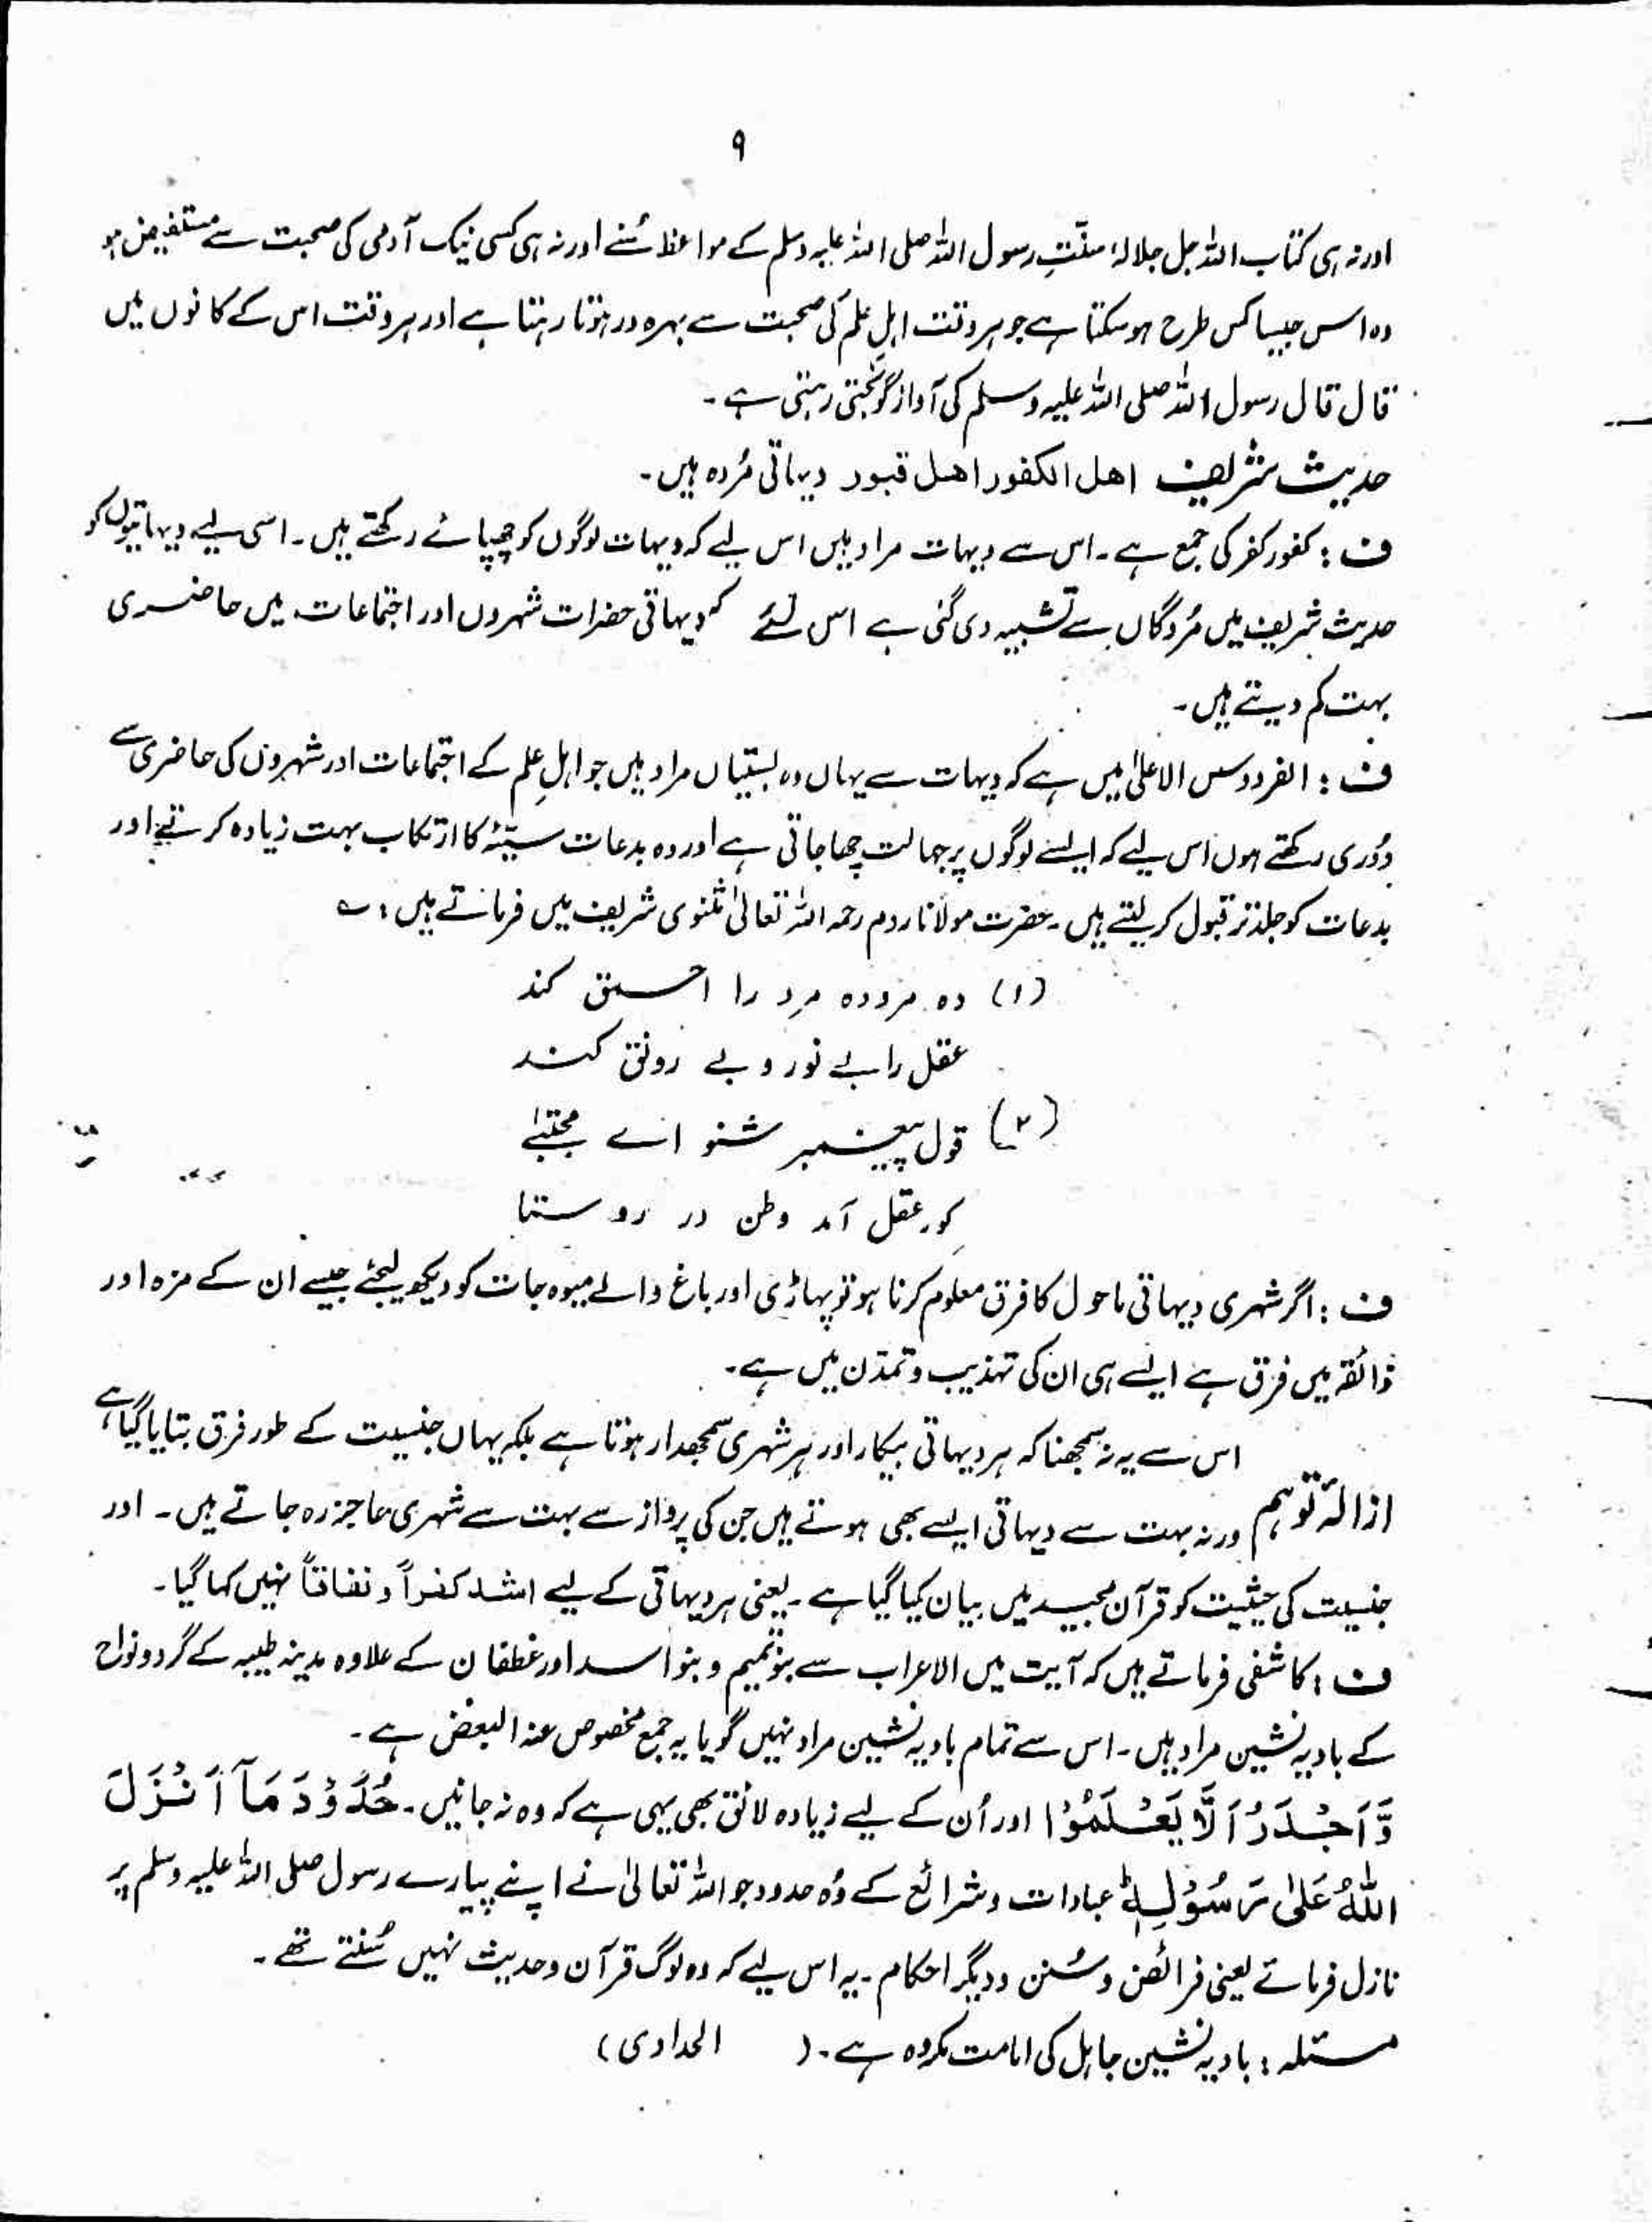 ۹
اور نہ ہی کتاب اللہ جل جلالہٗ سنّتِ رسول اللہ صلی اللہ علیہ وسلم کے مواعظ سُنے اور نہ ہی کسی نیک آدمی کی صحبت سے مستفیض ہو
وہ اس جیسا کس طرح ہو سکتا ہے جو ہر وقت اہلِ علم کی صحبت سے بہرہ ور ہوتا رہتا ہے اور ہر وقت اس کے کانوں میں
قال قال رسول اللہ صلی اللہ علیہ وسلم کی آواز گونجتی رہتی ہے۔
حدیث شریف اهل الکفور اهل قبور دیہاتی مُردہ ہیں۔
ف : کفور کفر کی جمع ہے۔ اس سے دیہات مراد ہیں اس لیے کہ دیہات لوگوں کو چھپائے رکھتے ہیں۔ اسی لیے دیہاتیوں کو
حدیث شریف میں مُردگاں سے تشبیہ دی گئی ہے اس لئے کہ دیہاتی حضرات شہروں اور اجتماعات میں حاضری
بہت کم دیتے ہیں۔
ف : الفردوس الاعلیٰ میں ہے کہ دیہات سے یہاں وہ بستیاں مراد ہیں جو اہلِ علم کے اجتماعات اور شہروں کی حاضری سے
دُوری رکھتے ہوں اس لیے کہ ایسے لوگوں پر جہالت چھا جاتی ہے اور وہ بدعات سیّئہ کا ارتکاب بہت زیادہ کرتے اور
بدعات کو جلد تر قبول کر لیتے ہیں۔ حضرت مولانا روم رحمہ اللہ تعالیٰ مثنوی شریف میں فرماتے ہیں : ؎
(۱) دہ مرو دہ مرد را احمق کند
عقل را بے نور و بے رونق کند
(۲) قول پیغمبر شنو اے مجتبےٰ
کور عقل آمد وطن در روستا
ف : اگر شہری دیہاتی ماحول کا فرق معلوم کرنا ہو تو پہاڑی اور باغ والے میوہ جات کو دیکھ لیجئے جیسے ان کے مزہ اور
ذائقہ میں فرق ہے ایسے ہی ان کی تہذیب و تمدّن میں ہے۔
اس سے یہ نہ سمجھنا کہ ہر دیہاتی بیکار اور ہر شہری سمجھدار ہوتا ہے بلکہ یہاں جنسیت کے طور فرق بتایا گیا ہے
ازالۂ توہم ورنہ بہت سے دیہاتی ایسے بھی ہوتے ہیں جن کی پرواز سے بہت سے شہری عاجز رہ جاتے ہیں۔ اور
جنسیت کی حیثیت کو قرآن مجید میں بیان کیا گیا ہے۔ یعنی ہر دیہاتی کے لیے اشد کفراً و نفاقاً نہیں کہا گیا۔
ف : کاشفی فرماتے ہیں کہ آیت میں الاعراب سے بنو تمیم و بنو اسد اور غطفان کے علاوہ مدینہ طیبہ کے گرد و نواح
کے بادیہ نشین مراد ہیں۔ اس سے تمام بادیہ نشین مراد نہیں گویا یہ جمع مخصوص عنہ البعض ہے۔
وَّاَجْدَرُ اَلَّا يَعْلَمُوْا اور اُن کے لیے زیادہ لائق بھی یہی ہے کہ وہ نہ جانیں۔ حُدُوْدَ مَآ اَنْزَلَ
اللّٰهُ عَلٰى رَسُوْلِهٖ ؕ عبادات و شرائع کے وُہ حدود جو اللہ تعالیٰ نے اپنے پیارے رسول صلی اللہ علیہ وسلم پر
نازل فرمائے یعنی فرائض و سُنن و دیگر احکام۔ یہ اس لیے کہ وہ لوگ قرآن و حدیث نہیں سُنتے تھے۔
مسئلہ : بادیہ نشین جاہل کی امامت مکروہ ہے۔ ( الحدادی )